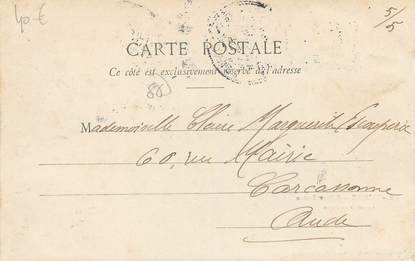 40 €
5/5
CARTE POSTALE
Ce côté est exclusivement réservé à l'adresse
88
Mademoiselle Claire Marguerite
60, rue Mairie
Carcassonne
Aude